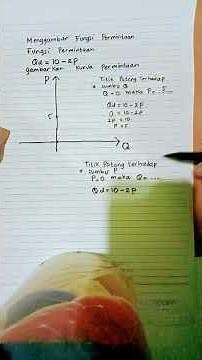 Menggambar Fungsi Permintaan
Fungsi Permintaan
Qd = 10 - 2P
gambarkan kurva Permintaan
P
5
Q
Titik Potong Terhadap
* sumbu Q
Q = 0 maka P = ..5..
Qd = 10 - 2P
0 = 10 - 2P
2P = 10
P = 5
Titik Potong terhadap
* sumbu P
P = 0 maka Q = ....
Qd = 10 - 2P